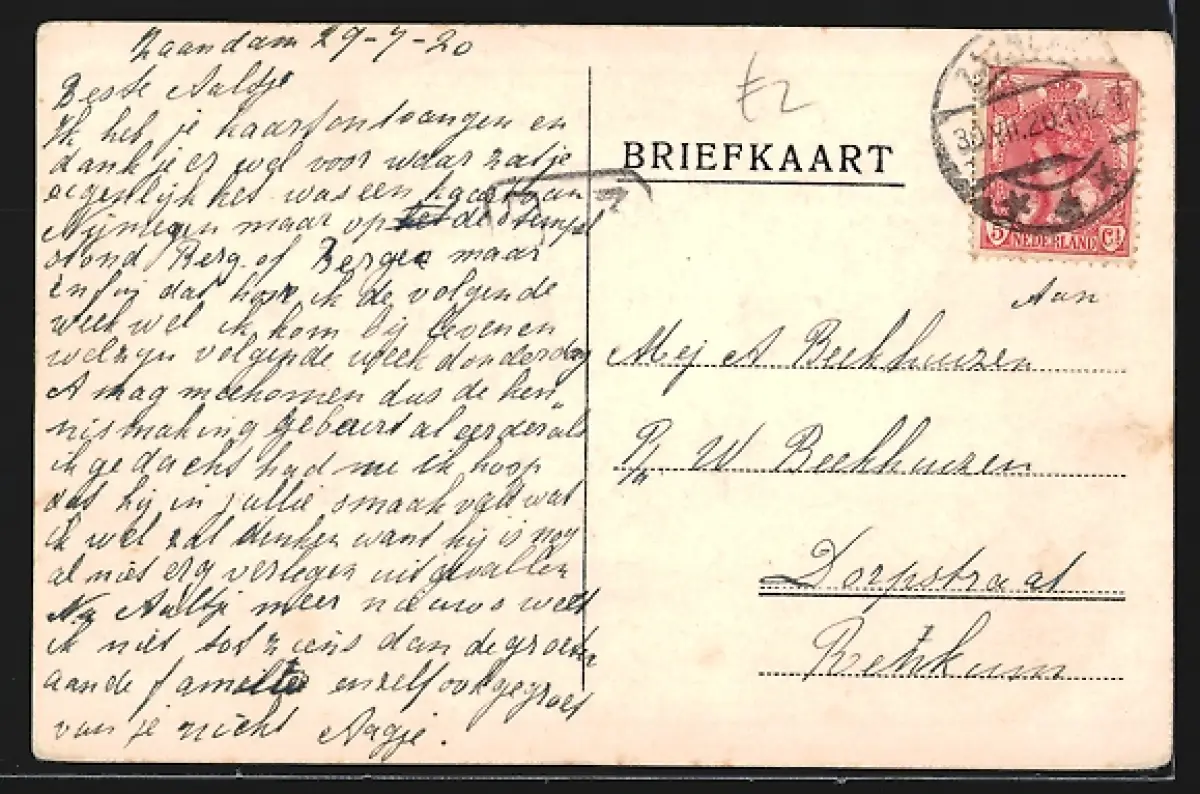 Zaandam 29-7-20
Beste Aaltje
Ik heb je kaart ontvangen en
dank je er wel voor waar zat je
eigenlijk het was een kaart van
Nijmegen maar op de stempel
stond Berg of Bergen maar
enfin dat hoor ik de volgende
week wel ik kom bij leven en
welzijn volgende week donderdag
A mag meekomen dus de ken"
nismaking gebeurt al eerder als
ik gedacht had nu ik hoop
dat hij in jullie smaak valt wat
ik wel zal denken want hij is nog
al niet erg verlegen uitgevallen
Nu Aaltje meer nieuws weet
ik niet tot ziens dan de groeten
aan de familie en zelf ook gegroet
van je nicht Aagje.
BRIEFKAART
30.VII.20.
5 NEDERLAND Ct
Aan
Mej A Beekhuizen
P/a W Beekhuizen
Dorpstraat
Renkum